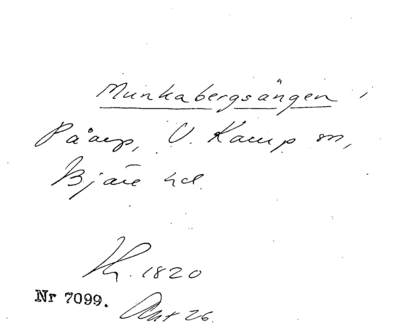 Munkabergsängen,
Påarp, V. Karup sn,
Bjäre hd.
Kh. 1820
Nr 7099.
Akt 26.